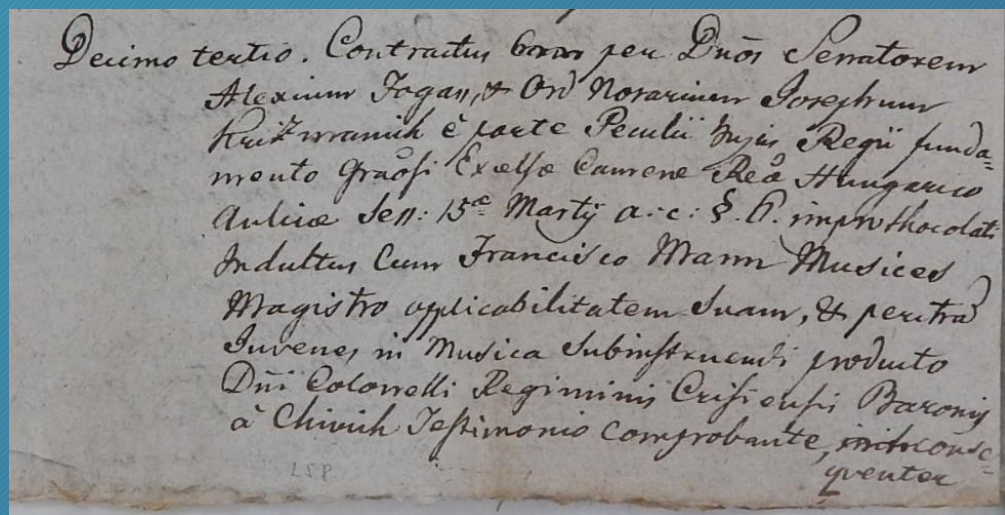 Decimo tertio. Contractus per Dnōs Senatorem
Alexium Fogass, & Ord Notarium Josephum
Krizmanich è parte Peculii hujus Regii funda=
mento Graōsi Excelsæ Cameræ Reā Hungarico
Aulicæ Sess: 15ª Martÿ a: c: §. 6. improthocolati
Indultus Cum Francisco Mann Musices
Magistro applicabilitatem Suam, & peritrā
Juvenes in Musica Subinstruendi producto
Dñi Colonelli Regiminis Crisiensis Baronis
à Chivich Testimonio comprobante, conse=
qventer